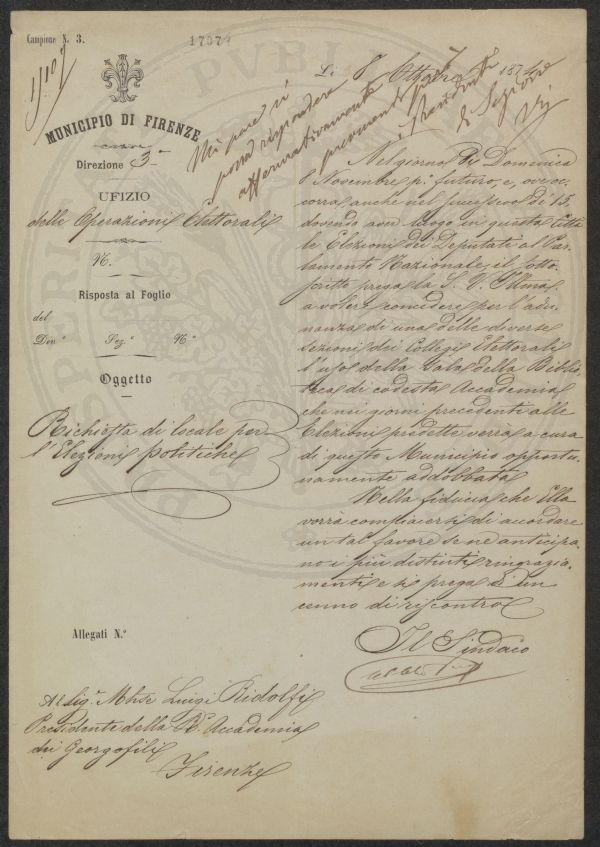 Campione N. 3.
17072
Li 8 Ottobre 1874
Mi pare si
possa rispondere
affermativamente
MUNICIPIO DI FIRENZE
Direzione 3ª
UFIZIO
delle Operazioni Elettorali
N.
Risposta al Foglio
del
Div.e Sez.e N.o
Oggetto
Richiesta di locale per
l'Elezioni politiche
Nel giorno di Domenica
8 Novembre p.o futuro, e, ove oc-
corra, anche nel successivo dì 15.
dovendo aver luogo in questa Città
le Elezioni dei Deputati al Par-
lamento Nazionale, il sotto-
scritto prega la S. V. Illma
a volere concedere per l'adu-
nanza di una delle diverse
sezioni dei Collegi Elettorali
l'uso della Sala della Biblio-
teca di codesta Accademia
che nei giorni precedenti alle
Elezioni predette verrà a cura
di questo Municipio opportu-
namente addobbata.
Nella fiducia che Ella
vorrà compiacersi di accordare
un tal favore se ne anticipa-
no i più distinti ringrazia-
menti e si prega d'un
cenno di riscontro
Il Sindaco
Allegati N.o
Al Sig.r Mhse Luigi Ridolfi
Presidente della R.a Accademia
dei Georgofili
Firenze